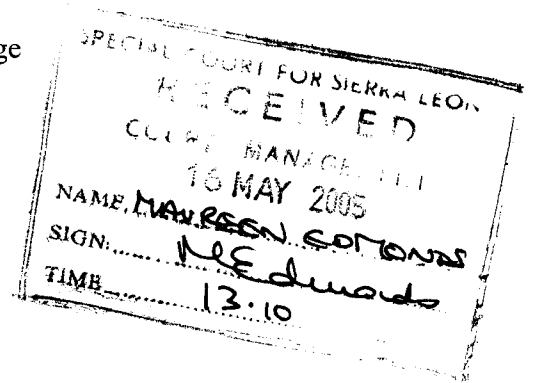 ge
SPECIAL COURT FOR SIERRA LEON
RECEIVED
COURT MANAGEMENT
16 MAY 2005
NAME MAUREEN EDMONDS
SIGN: MEdmonds
TIME 13.10